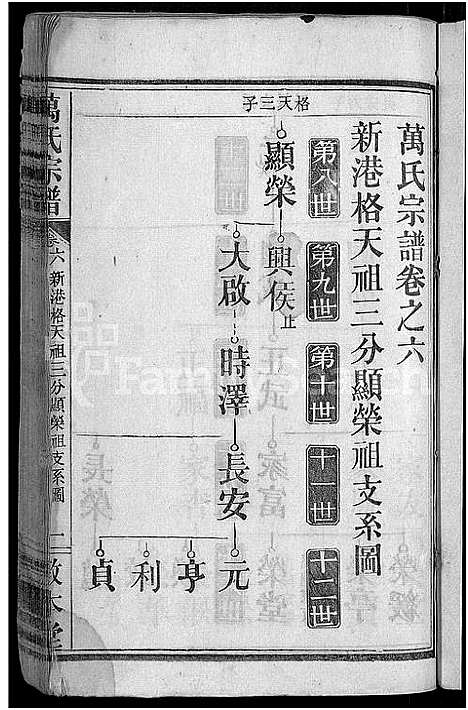 萬氏宗譜卷之六
新港格天祖三分顯榮祖支系圖
第八世
第九世
第十世
十一世
十二世
格天三子
顯榮
興侯止
大啟
時澤
長安
元
亨
利
貞
萬氏宗譜
卷六
新港格天祖三分顯榮祖支系圖
二
敦本堂